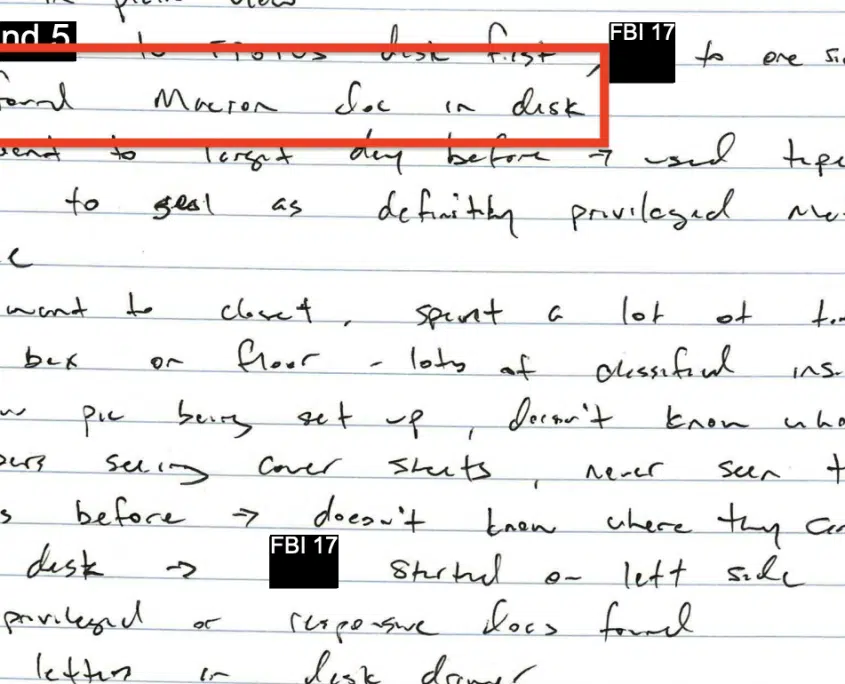 nd 5 to FPOTUS disk first, FBI 17 to one si
found Macron doc in disk
went to largest day before → used tape
to seal as definitly privileged
want to closet, spent a lot of
box on floor - lots of classified ins
pic being set up, doesn't know who
seeing cover sheets, never seen
s before → doesn't know where they
desk → FBI 17 started on left side
privileged or responsive docs found
letters in desk drawer